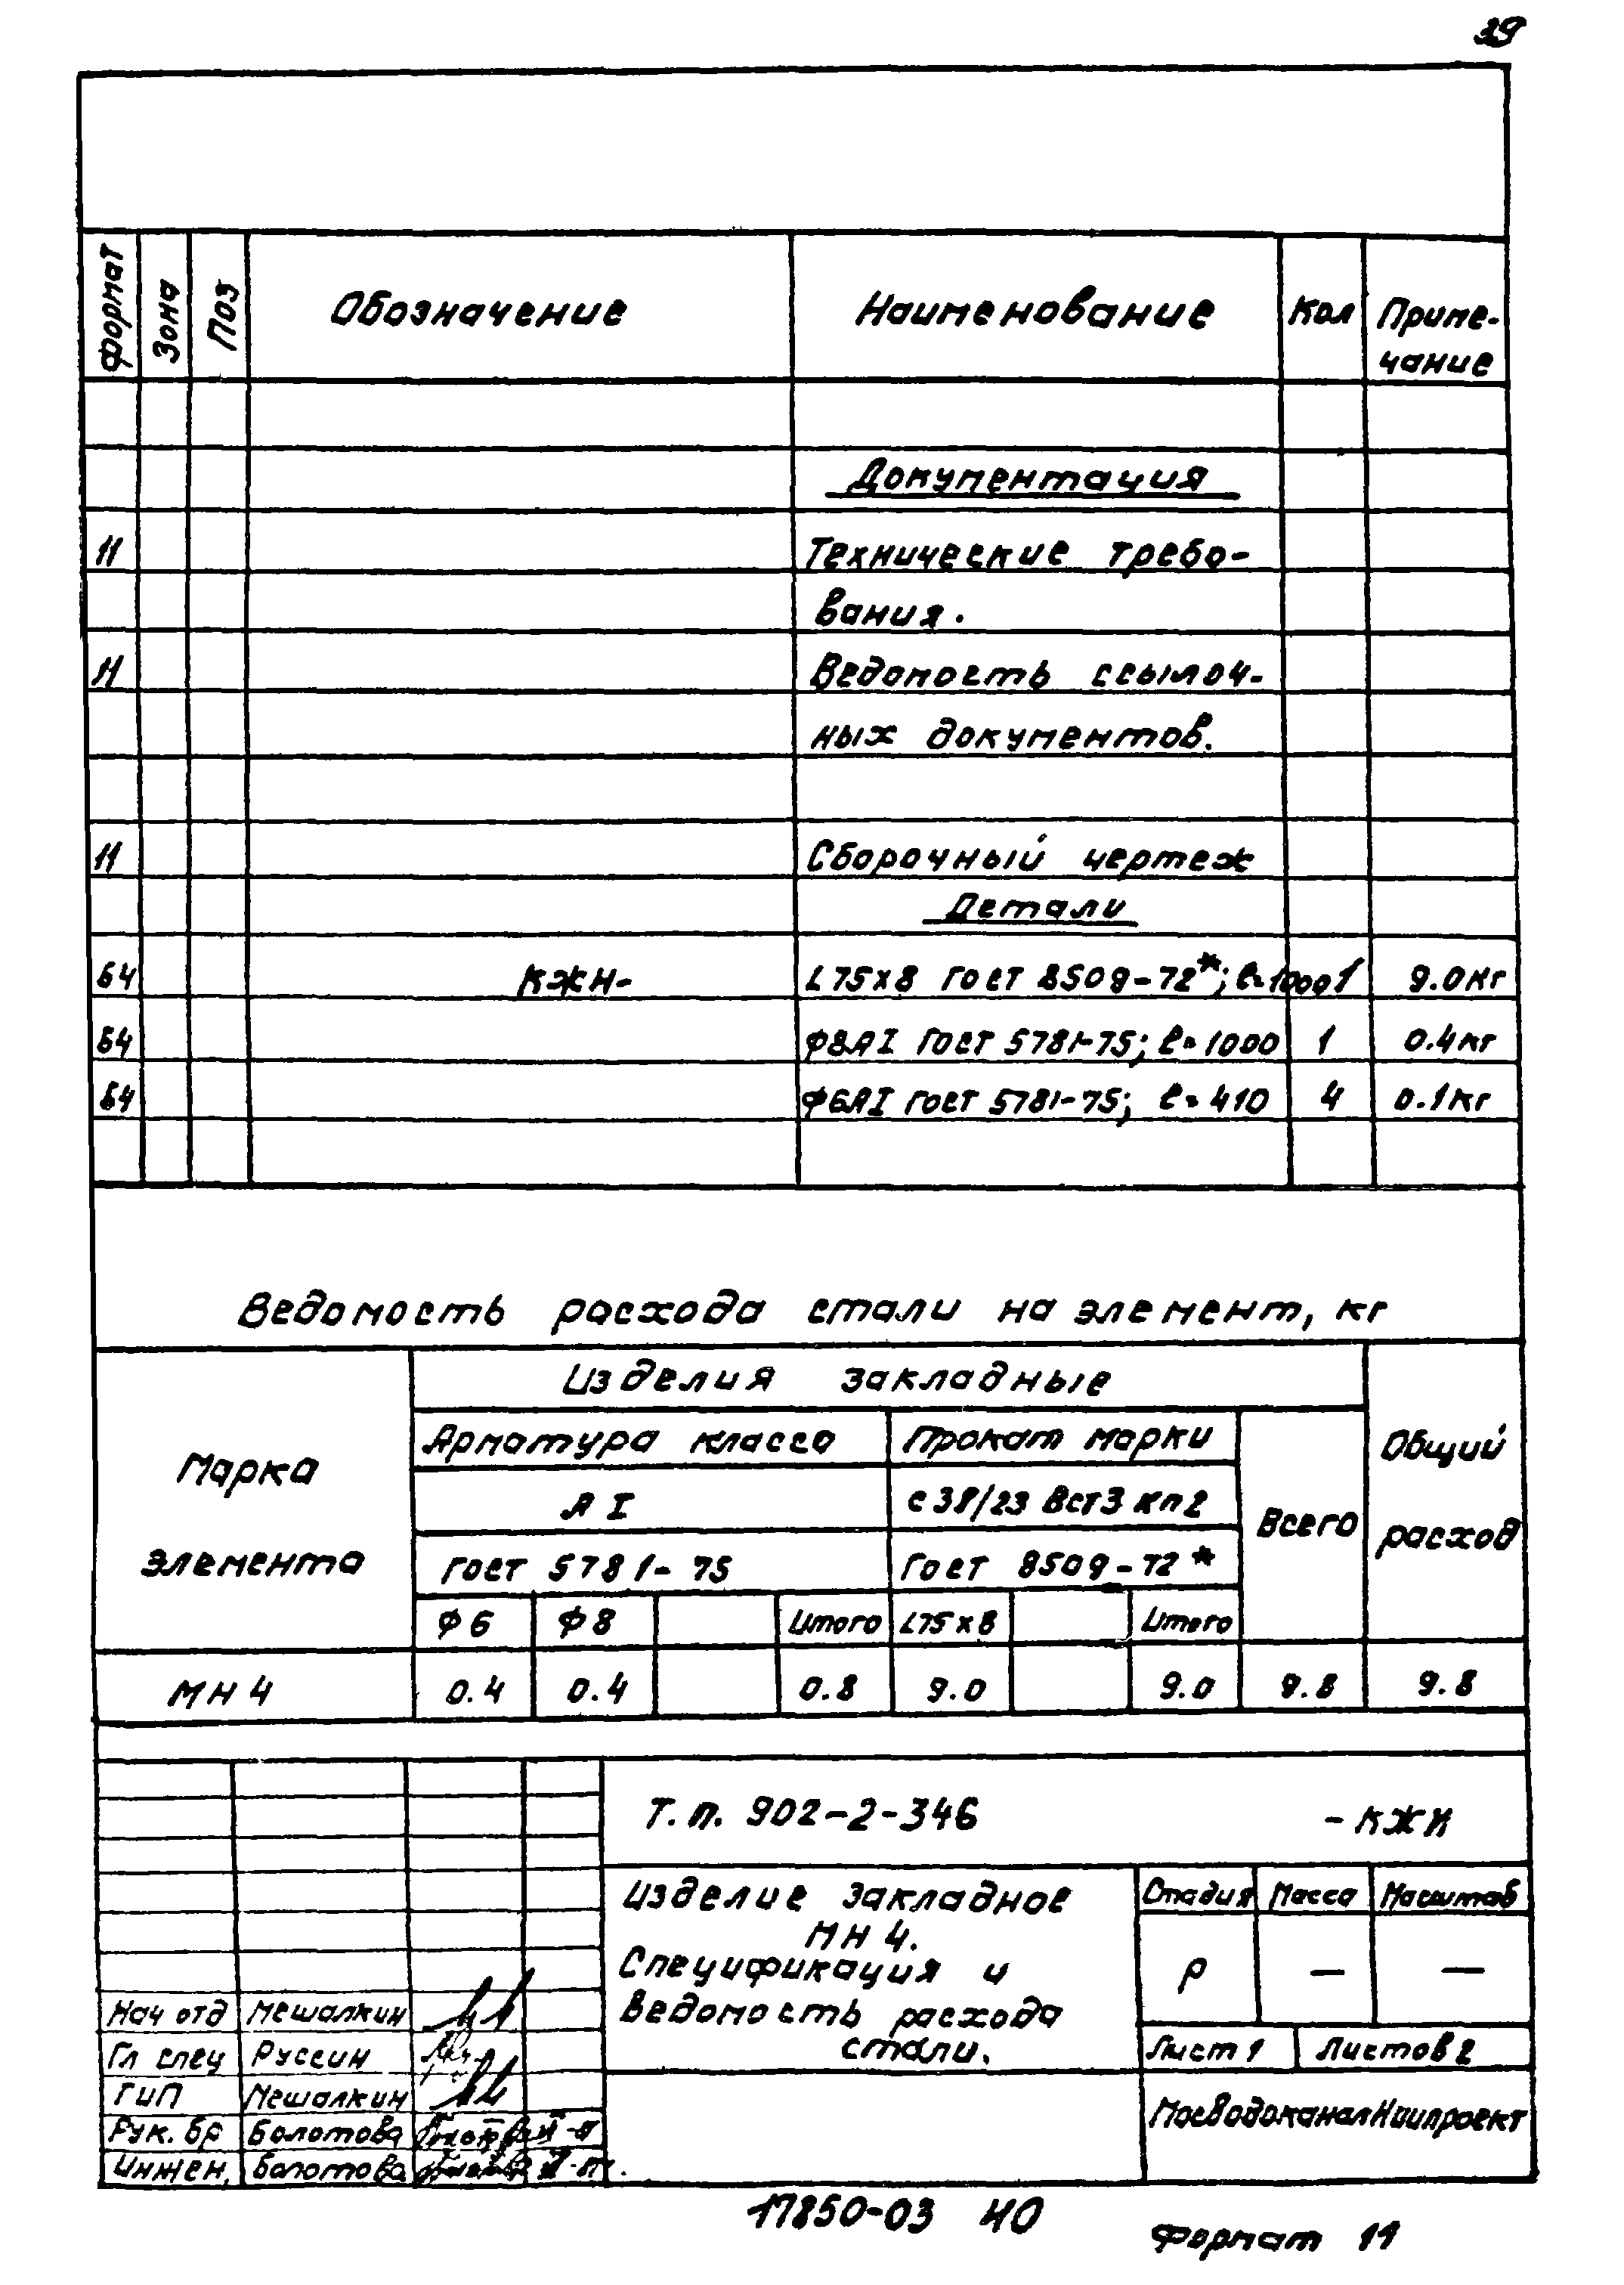 39
Формат Зона Поз Обозначение Наименование Кол Приме-
чание
Документация
11 Технические требо-
вания.
11 Ведомость ссылоч-
ных документов.
11 Сборочный чертеж
Детали
Б4 КЖИ- L75×8 ГОСТ 8509-72*; ℓ=1000 1 9.0кг
Б4 Ф8АI ГОСТ 5781-75; ℓ=1000 1 0.4кг
Б4 Ф6АI ГОСТ 5781-75; ℓ=410 4 0.1кг
Ведомость расхода стали на элемент, кг
Марка
элемента
Изделия закладные
Общий
расход
Арматура класса Прокат марки Всего
АI с 38/23 Вст3 кп2
ГОСТ 5781-75 ГОСТ 8509-72*
Ф6 Ф8 Итого L75×8 Итого
МН4 0.4 0.4 0.8 9.0 9.0 9.8 9.8
Т.п. 902-2-346 -КЖИ
Изделие закладное
МН4.
Спецификация и
ведомость расхода
стали.
Стадия Масса Масштаб
Р — —
Лист 1 Листов 2
МосводоканалНиипроект
Нач отд Мешалкин
Гл спец Руссин
ГИП Мешалкин
Рук. бр Болотова
Инжен. Болотова
17850-03 40
Формат 11